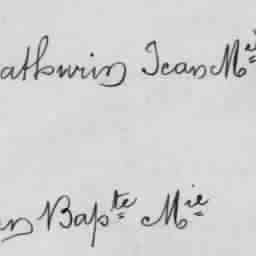 athurin Jean M.ie
n Bapte Mie